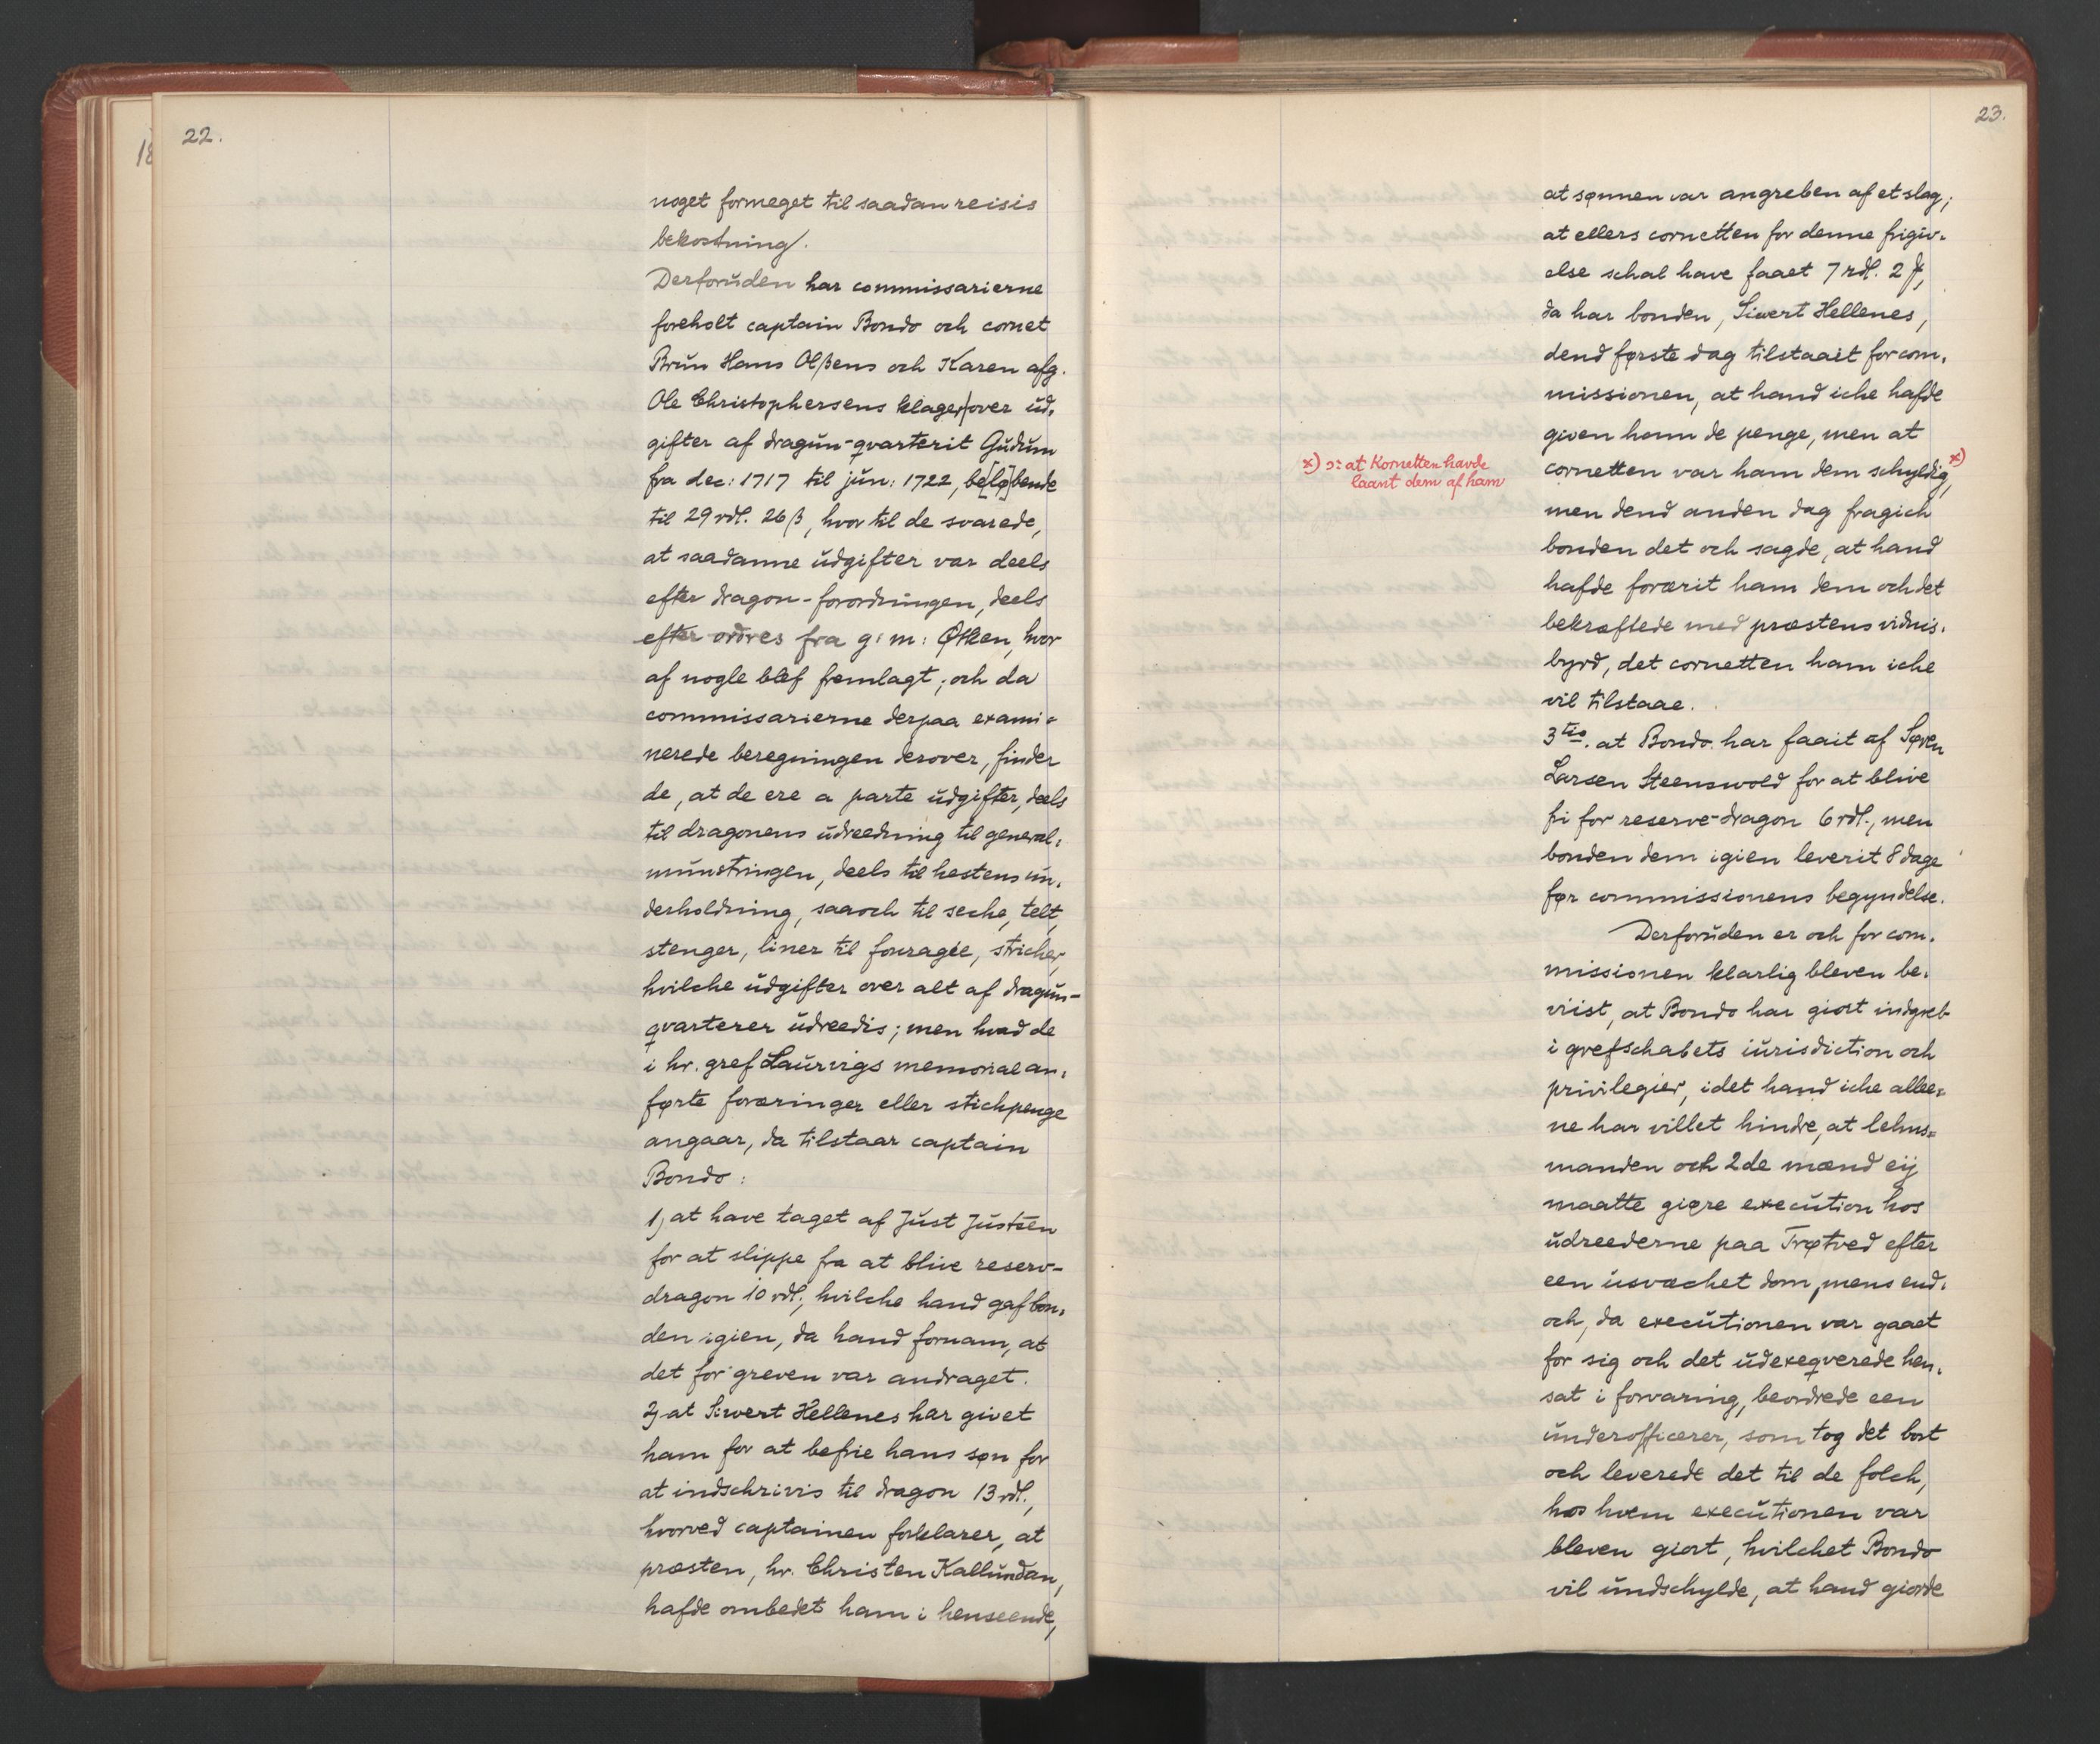 22.
noget formeget til saadan reisis
bekostning/.
Derforŭden har commissarierne
foreholt captain Bondo och cornet
Brŭn Hans Olßens och Karen afg.
Ole Christophersens klager over ŭd-
gifter af dragŭn-qvarterit Gŭdrŭm
fra dec: 1717 til jŭn: 1722, be[lø]bende
til 29 rdl. 26 β, hvor til de svarede,
at saadanne ŭdgifter var deels
efter dragon-forordningen, deels
efter ordres fra g: m: Øtken, hvor
af nogle blef fremlagt; och da
commissarierne derpaa exami-
nerede beregningen derover, finder
de, at de ere a parte ŭdgifter, deels
til dragonens ŭdreedning til general-
mŭnstringen, deels til hestens ŭn-
derholdning, saa och til seche, telt,
stenger, liner til fouragée, stricher,
hvilche ŭdgifter over alt af dragŭn-
qvarterer ŭdreedis; men hvad de
i hr. gref Laŭrvigs memorial an-
førte foræringer eller stichpenge
angaar, da tilstaar captain
Bondo:
1) at have taget af Jŭst Jŭstsen
for at slippe fra at blive reserv-
dragon 10 rdl., hvilche hand gaf bon-
den igien, da hand fornam, at
det for greven var andraget.
2) at Siwert Hellenes har givet
ham for at befrie hans søn for
at indschrivis til dragon 13 rdl.,
hvorved captainen forklarer, at
præsten, hr. Christen Kallŭndan,
hafde ombedet ham i henseende,
23.
at sønnen var angreben af et slag;
at ellers cornetten for denne frigiv-
else schal have faaet 7 rdl. 2 ₰,
da har bonden, Siwert Hellenes,
dend første dag tilstaait for com-
missionen, at hand iche hafde
given ham de penge, men at
cornetten var ham dem schyldig, x)
x) ɔ: at Kornetten havde
laant dem af ham
men dend anden dag fragich
bonden det och sagde, at hand
hafde forærit ham dem och det
bekræftede med præstens vidnis-
byrd, det cornetten ham iche
vil tilstaae.
3tio. at Bondo har faait af Søren
Larsen Steenswold for at blive
fri for reserve-dragon 6 rdl., men
bonden dem igien leverit 8 dage
før commissionens begyndelse.
Derforŭden er och for com-
missionen klarlig bleven be-
viist, at Bondo har giort indgreb
i grefschabets iŭrisdiction och
privilegier, idet hand iche allee-
ne har villet hindre, at lehns-
manden och 2de mænd eij
maatte giøre execŭtion hos
ŭdreederne paa Trøtved efter
een ŭsvæchet dom, mens end-
och, da execŭtionen var gaaet
for sig och det ŭdexeqverede hen-
sat i forvaring, beordrede een
ŭnderofficerer, som tog det bort
och leverede det til de folch,
hos hvem execŭtionen var
bleven giort, hvilchet Bondo
vil ŭndschylde, at hand giorde